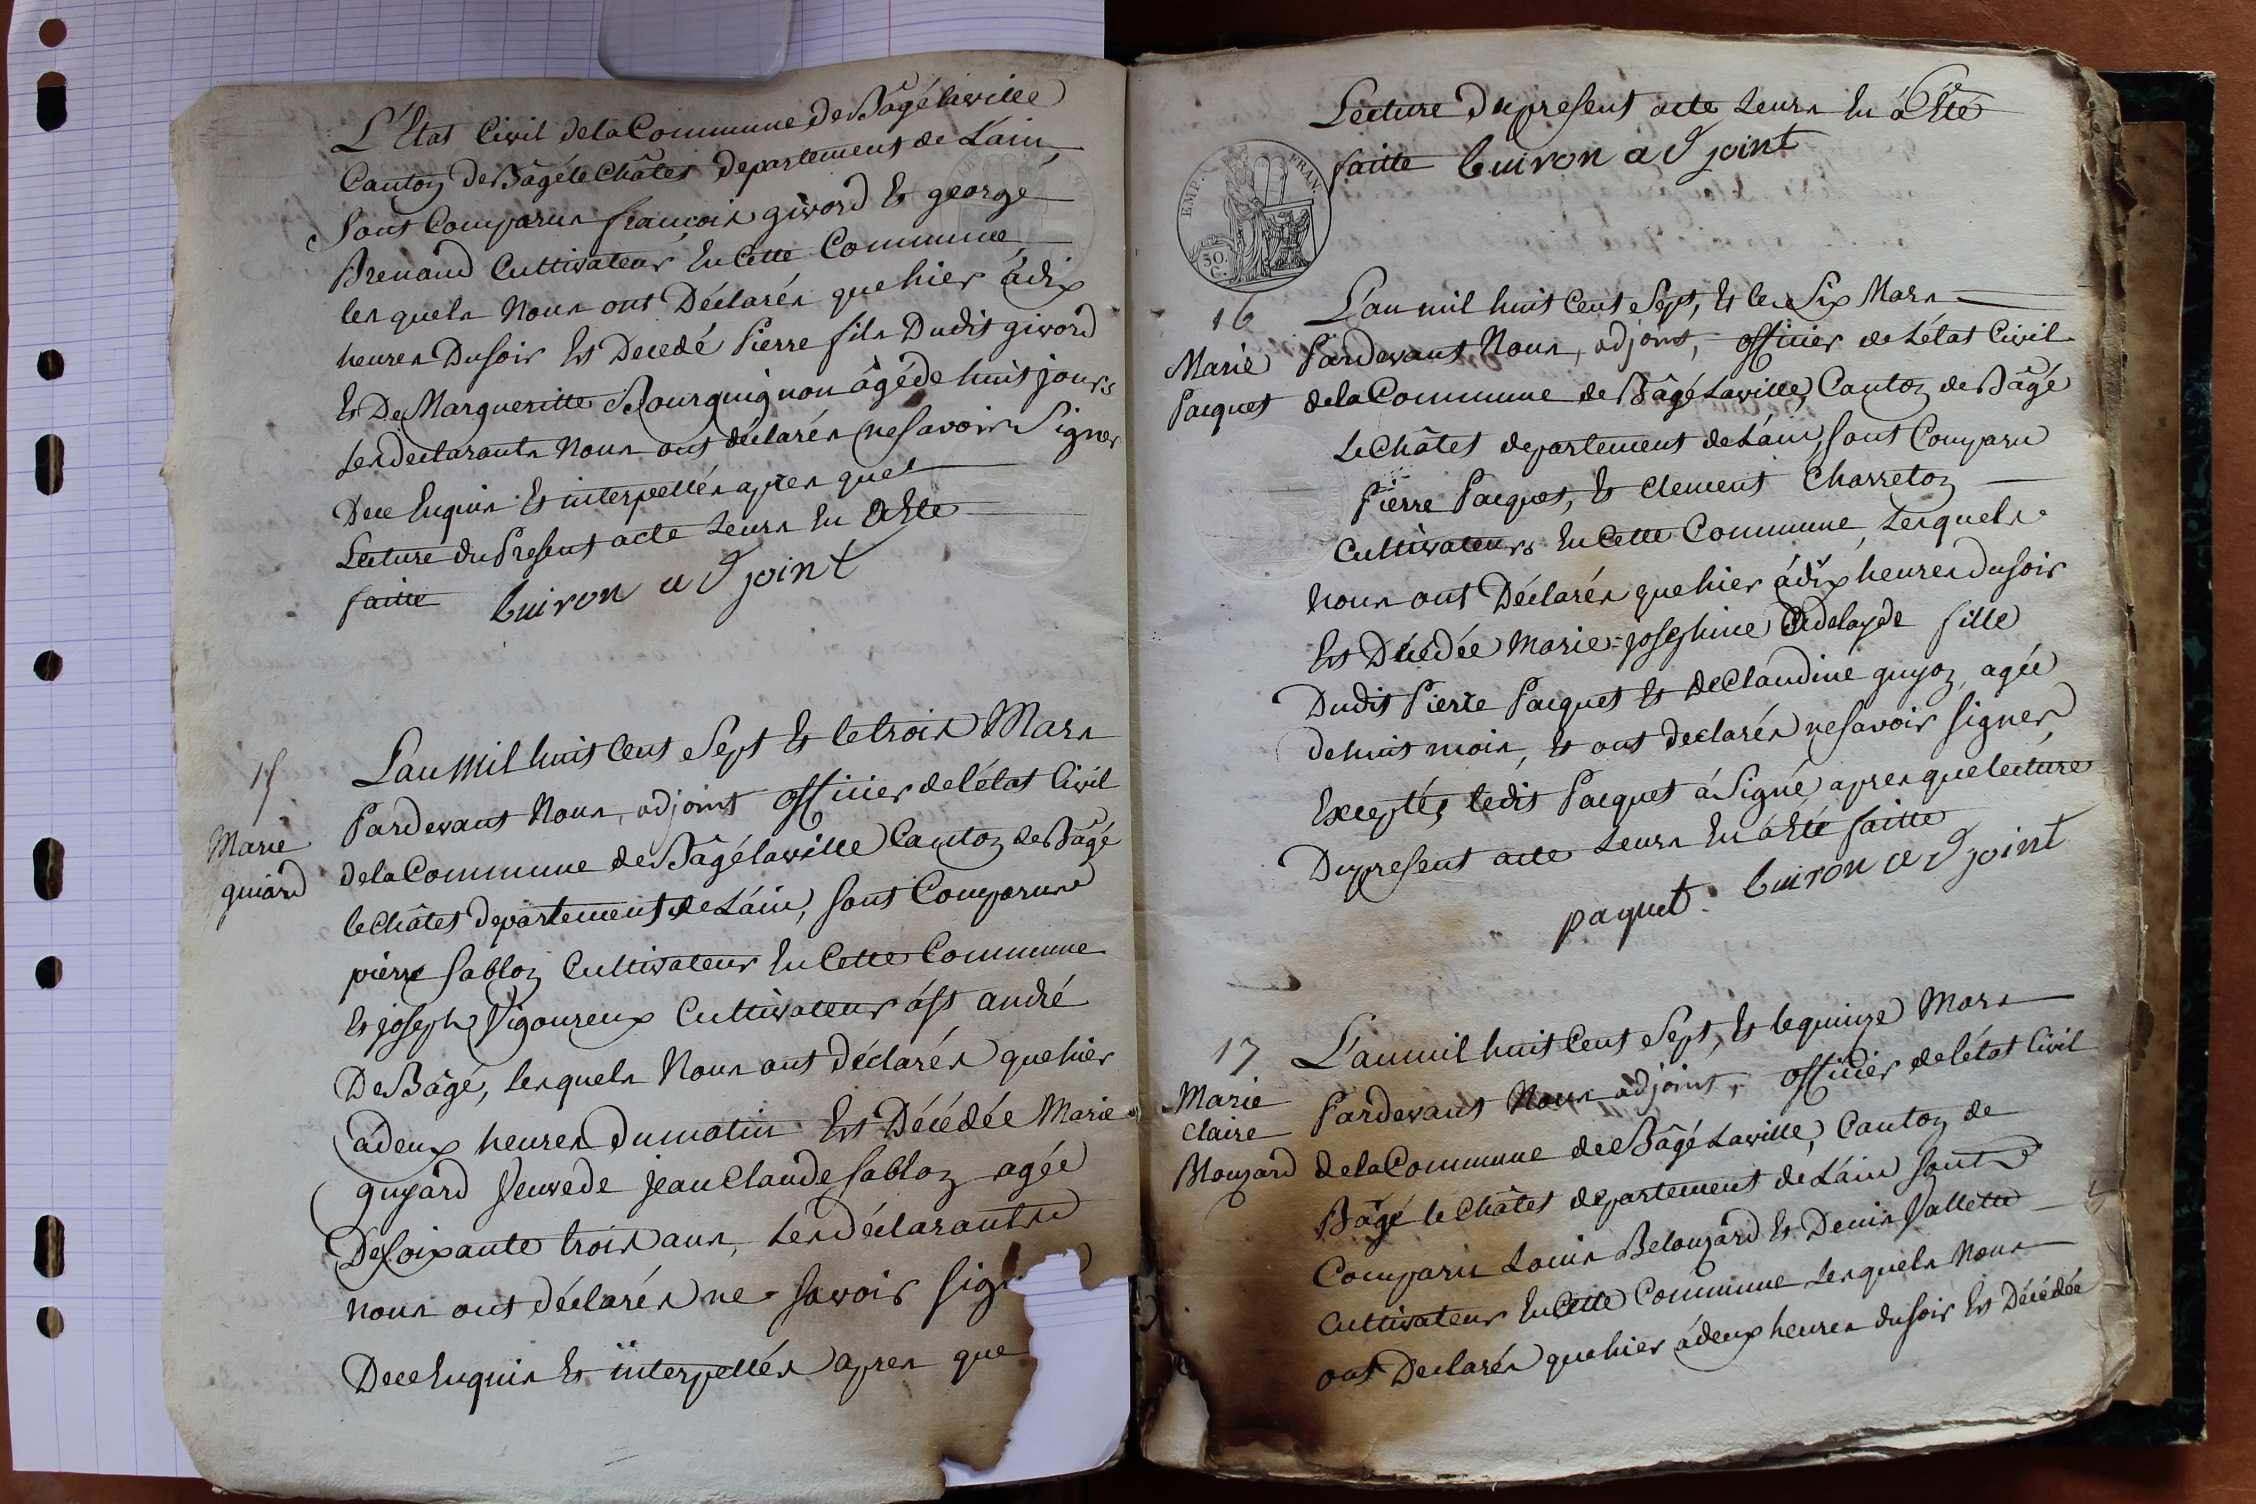 L'Etat Civil de la Commune de Bâgélaville
Canton de Bâgé le Châtel departement de L'ain,
sont Comparus françois givord Et george
Brenaud Cultivateur En Cette Commune
lesquels Nous ont Déclarés que hier à dix
heures Du soir Est Decedé Pierre fils Dudit givord
Et De Margueritte Bourguignon âgé de huit jours
Les declarants Nous ont déclarés ne savoir Signer
De ce Enquis Et interpellés apres que
Lecture du Present acte Leurs En a Ete
faitte Buiron adjoint
15
Marie
guiard
L'an Mil huit Cent Sept Et le trois Mars
Pardevant Nous, adjoint officier de l'état Civil
de la Commune de Bâgélaville Canton de Bâgé
le Châtel departement de L'ain, sont Comparus
pierre Sablon Cultivateur En Cette Commune
Et joseph Vigoureux Cultivateur à St andré
De Bâgé, lesquels Nous ont déclarés que hier
à deux heures du matin Est Décédée Marie
guyard Veuve de jean Claude Sablon agée
De soixante trois ans, Les déclarants
nous ont déclarés ne savoir sig
De ce Enquis Et interpellés apres que
Lecture Du present acte Leurs En à Eté
faitte Buiron adjoint
EMP. FRAN.
50.
C.
16
Marie
Pacquet
L'an mil huit Cent Sept, Et le Six Mars
Pardevant Nous, adjoint, officier de L'état Civil
de la Commune de Bâgé Laville, Canton de Bâgé
Le Châtel departement de L'ain, sont Comparu
Pierre Pacquet, Et Clement Charreton
Cultivateurs En Cette Commune, Lesquels
Nous ont Déclarés que hier à dix heures du soir
Est Décédée Marie-josephine Adelayde fille
Dudit Pierre Pacquet Et de Claudine guyon, agée
de huit mois, Et ont declarés ne savoir signer,
Exceptés ledit Pacquet à Signé apres que lecture
Du present acte Leurs En à Eté faitte
paquet. Buiron adjoint
17
Marie
Claire
Blouzard
L'an mil huit Cent Sept, Et le quinze Mars
Pardevant Nous adjoint, officier de l'état Civil
de la Commune de Bâgé Laville, Canton de
Bâgé le Châtel departement de L'ain sont
Comparu Louis Belouzard Et Denis Vallette
Cultivateur En Cette Commune Lesquels Nous
ont Declarés que hier à deux heures du soir Est Décédée